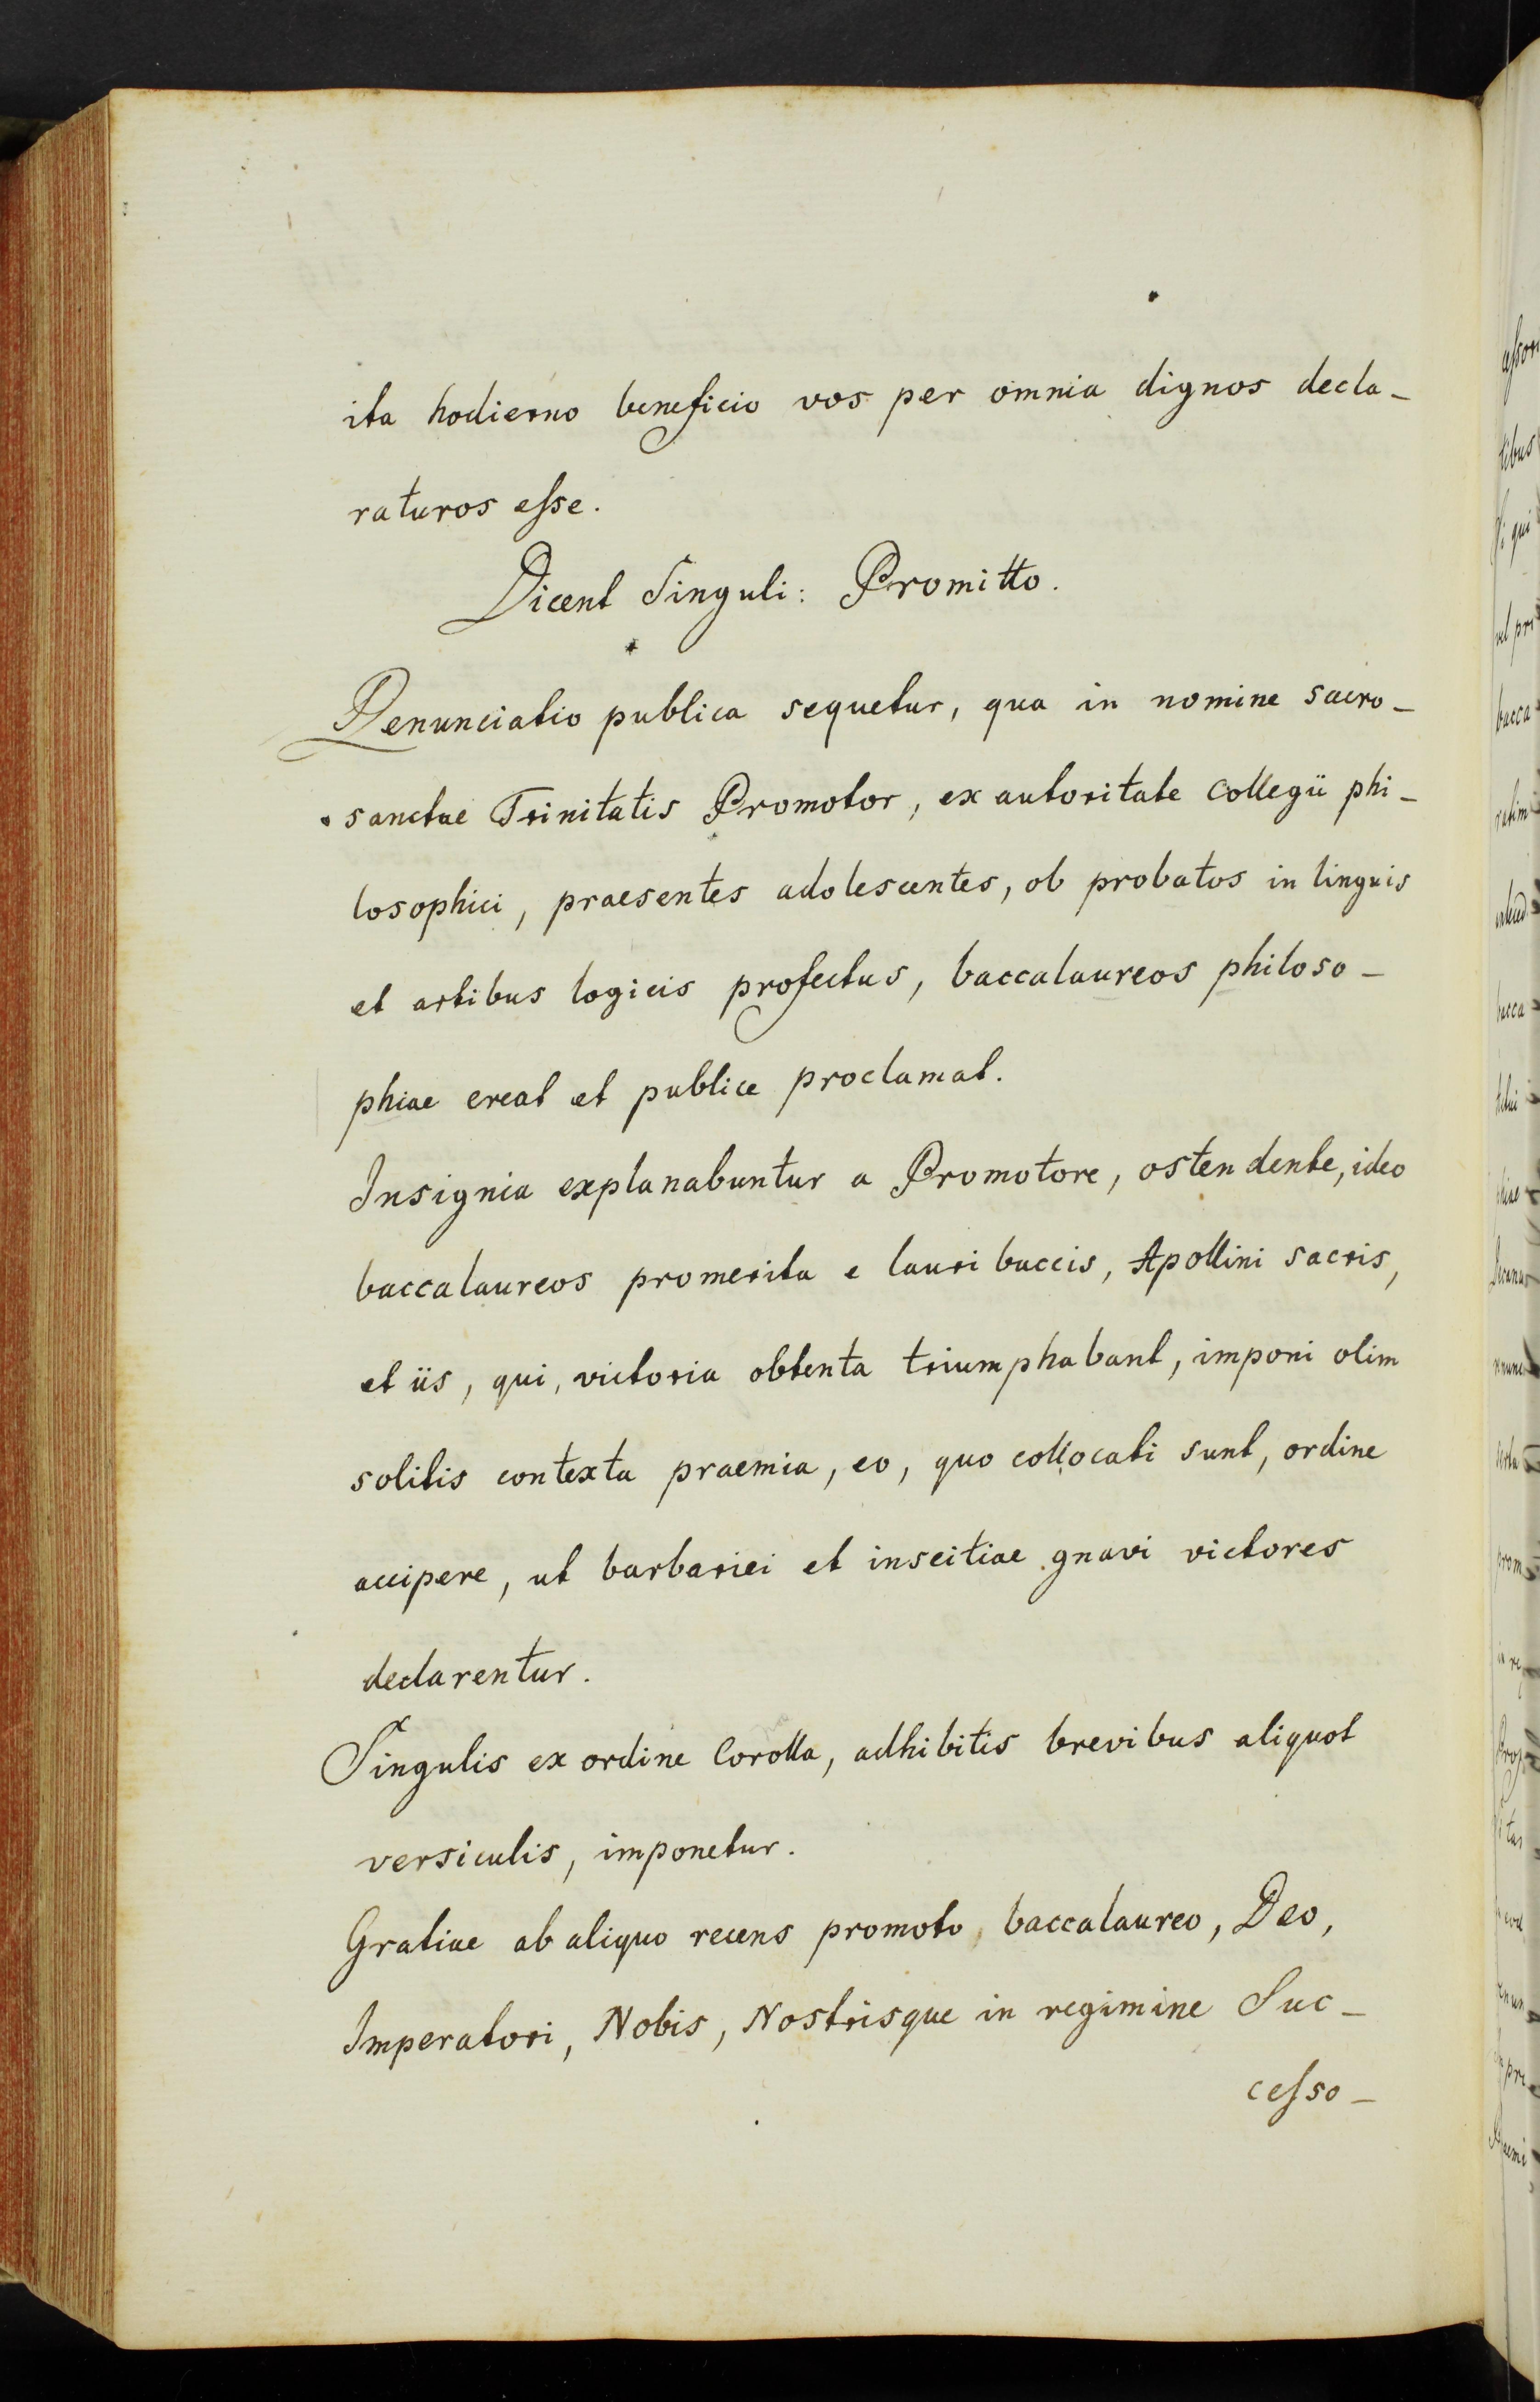 ita hodierno beneficio vos per omnia dignos decla-
raturos esse.
Dicent Singuli: Promitto.
Denunciatio publica sequetur, qua in nomine sacro-
sanctae Trinitatis Promotor, ex autoritate Collegii phi-
losophici, praesentes adolescentes, ob probatos in linguis
et artibus logicis profectus, baccalaureos philoso-
phiae creat et publice proclamat.
Insignia explanabuntur a Promotore, ostendente, ideo
baccalaureos promerita e lauri baccis, Apollini sacris,
et iis, qui, victoria obtenta triumphabant, imponi olim
solitis contexta praemia, eo, quo collocati sunt, ordine
accipere, ut barbariei et inscitiae gnavi victores
declarentur.
Singulis ex ordine Corolla, adhibitis brevibus aliquot
versiculis, imponetur.
Gratiae ab aliquo recens promoto, baccalaureo, Deo,
Imperatori, Nobis, Nostrisque in regimine Suc-
cesso-